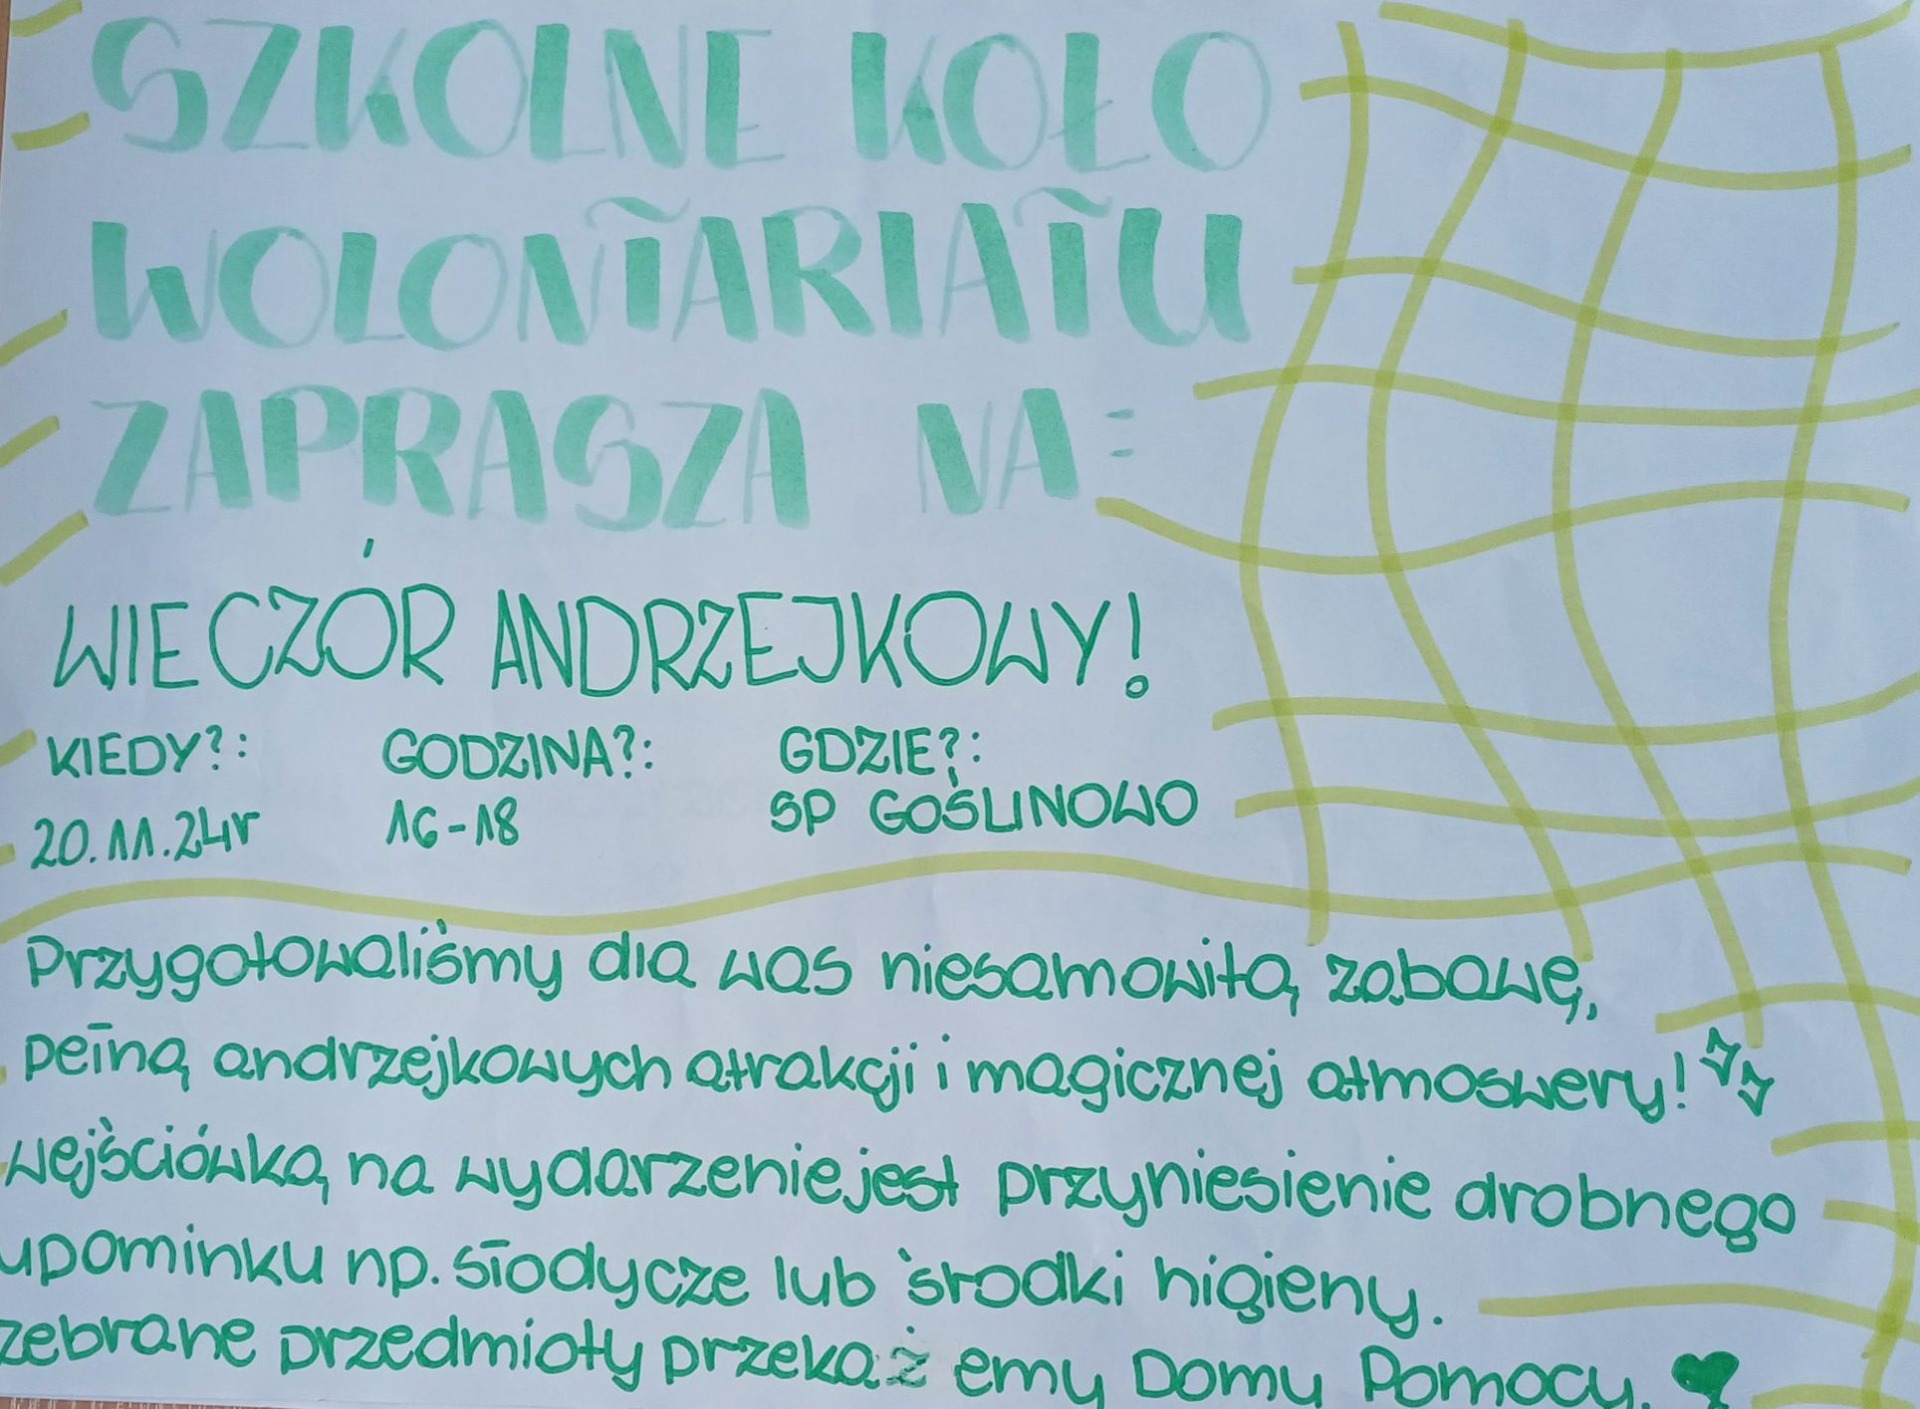 SZKOLNE KOŁO
WOLONTARIATU
ZAPRASZA NA:
WIECZÓR ANDRZEJKOWY!
KIEDY?: GODZINA?: GDZIE?:
20.11.24r 16-18 SP GOŚLINOWO
Przygotowaliśmy dla was niesamowitą zabawę,
pełną andrzejkowych atrakcji i magicznej atmoswery!
wejściówką na wydarzenie jest przyniesienie drobnego
upominku np. słodycze lub środki higieny.
zebrane przedmioty przekażemy Domu Pomocy.